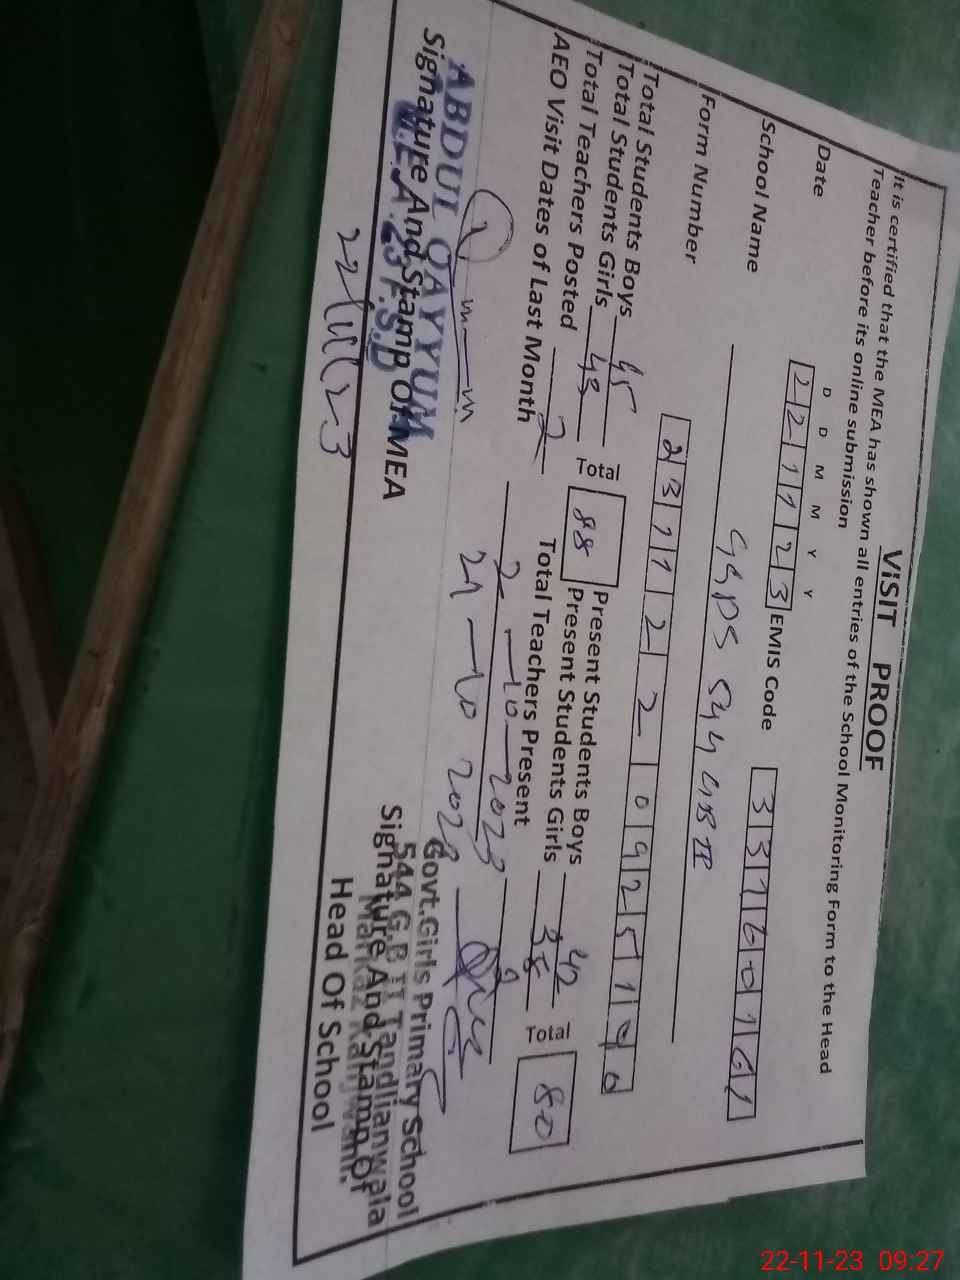 ViSIT PROOF
It is certified that the MEA has shown all entries of the School Monitoring Form to the Head
Teacher before its online submission
D D M M Y Y
Date 2 2 1 1 2 3 EMIS Code 3 3 1 6 0 1 6 1
School Name GGPS 544 GB II
Form Number 2 3 1 1 2 2 0 9 2 5 1
Total Students Boys 45 Present Students Boys 42
Total Students Girls 43 Total 88 Present Students Girls 38 Total 80
Total Teachers Posted 2 Total Teachers Present 2
AEO Visit Dates of Last Month 2-10-2023
21-10 2023
ABDUL QAYYUM
M.E.A. 23 F.S.D
Signature And Stamp Of MEA
22/11/23
Govt.Girls Primary School
544 G.B II Tandlianwala
Markaz Kanjwani.
Signature And Stamp Of
Head Of School
22-11-23 09:27